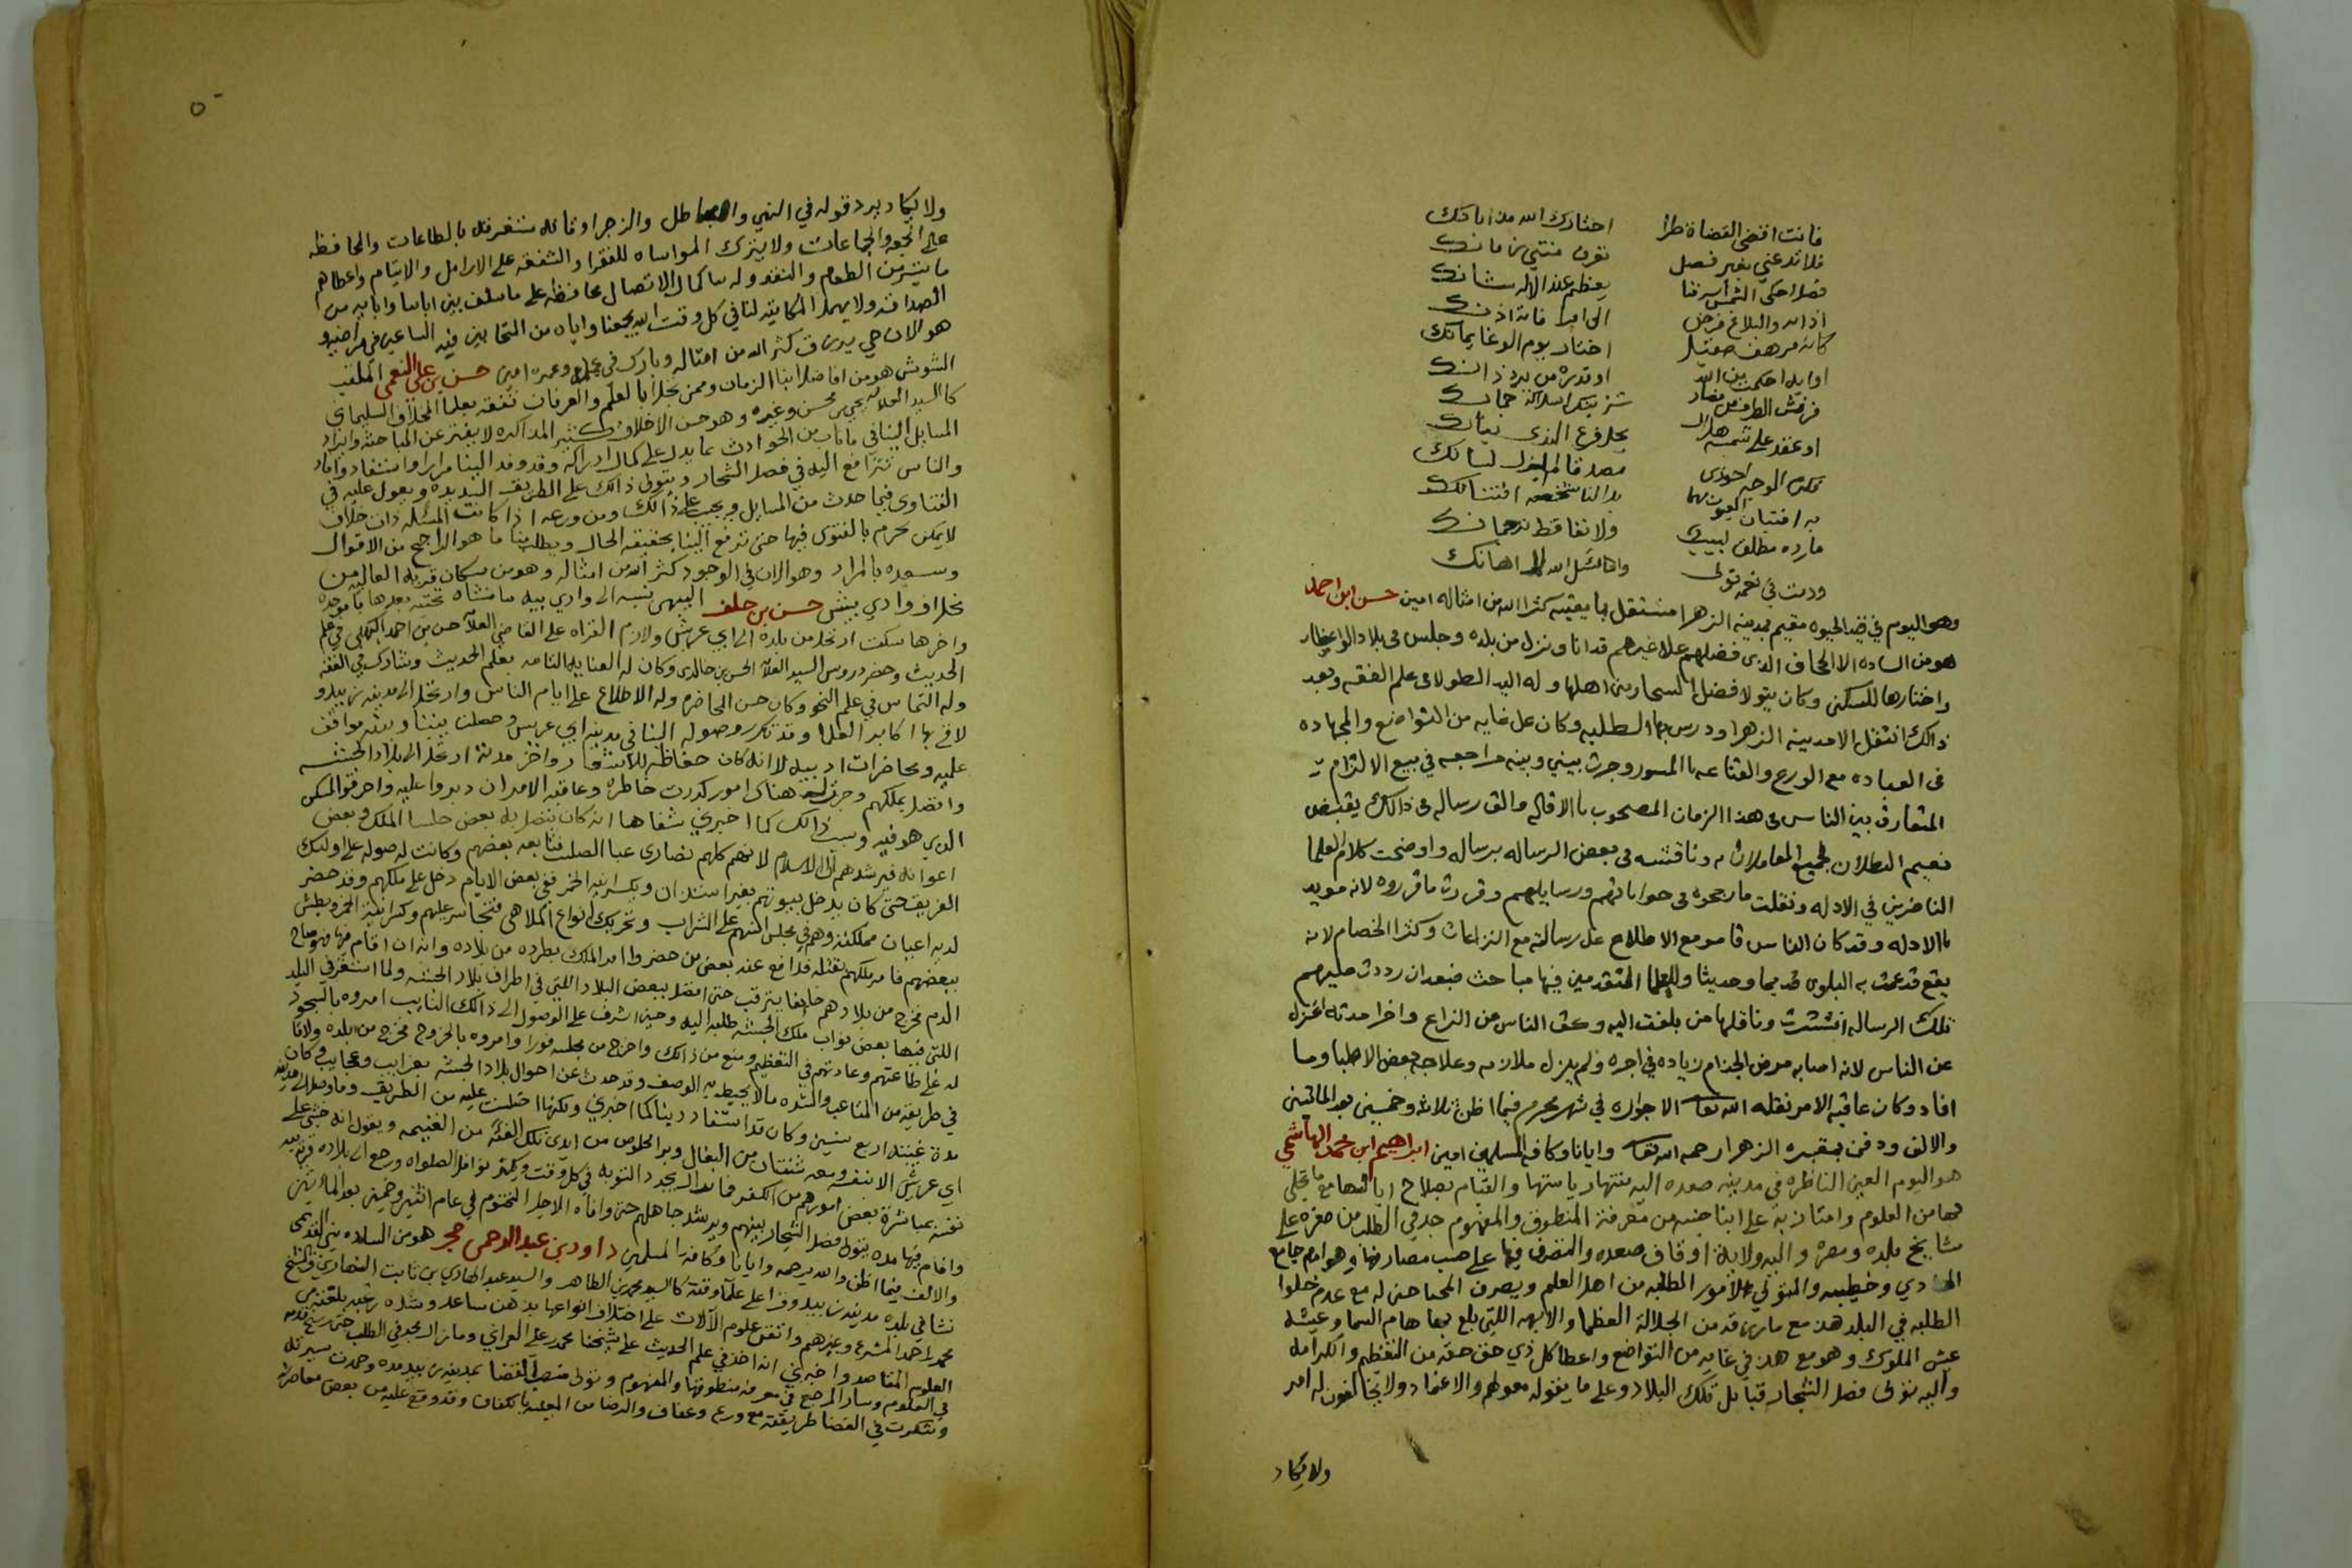 فانت اقضى القضاة طرا احتارك الله من ابانك
فلا تدعني بغير فصل تقرن منتي زمانك
فضلا حكى الشمس اشرفنا يعظم عند الاله شانك
اذا به والبلاغ فرض الى فانه اذنك
كانه مرهف صقيل اختار يوم الوغا يمانك
او بله احكمت من الله او تدره من برد ذانك
او عقد على شمسه هلال
به افتنان العيون لما بدا لنا شخصه افتنانك
ما رده مطلق لبيب ولا نفا قط ترجمانك
ودمت في نعمة تولى واهانسل الله اهانك
وهو اليوم في قيد الحيوه مقيم بمدينة الزهرا مشتغل بما يعنيه كثر الله من امثاله امين حسن ابن احمد
هو من الساده الا الحجاف الذي فضلهم علا غيرهم قد انا ونزل من بلده وجلس في بلاد الواعظار
واختارها للسكنى وكان يتولا فصل السجار بين اهلها وله اليد الطولا في علم الفقه وبعد
ذالك انتقل الا مدينة الزهرا ودرس بها الطلبه وكان على غايه من التواضع والمجهاده
في العباده مع الورع والقناعه باالميسور وجرت بيني وبينه مراجعه في بيع الالتزام
المتعارف بين الناس في هذا الزمان المصحوب باالاقاله والف رساله في ذالك يقبض
تعميم البطلان لجميع المعاملات وناقشته في بعض الرساله برساله واوضحت كلام العلما
الناضرين في الادله ونقلت ما رجحوه في جواباتهم ورسايلهم وقررت ما قرروه لانه مويد
باالادله وقد كان الناس قامو مع الاطلاع على رسالته مع النزاعات وكثرا الخصام لانه
يقع قد عمت به البلوى قديما وحديثا وللعلما المتقدمين فيها مباحث فبعد ان رددت عليهم
تلك الرساله انتشرت وناقلها من بلغت اليه وكف الناس من النزاع واخرا مدته اعتزل
عن الناس لانه اصابه مرض الجذام زياده في اجره ولم يزل ملازمه وعلاجه بعض الاطبا وما
افاد وكان عاقبه الامر نقله الله تعا الا جواره في شهر محرم فيما اظن ثلاثه وخمسين بعد المائتين
والالف ودفن بمقبره الزهرا رحمه الله تعا وايانا وكافه المسلمين امين ابراهيم ابن محمد الهاشمي
هو اليوم العين الناظره في مدينه صعده اليه منتها رياستها والقيام بصلاح اربابها مع ما تحلى
بها من العلوم وامتاز به على ابنا جنسه من معرفة المنطوق والمفهوم جد في الطلب من صغره على
مشايخ بلده وعصره واليه ولاية اوقاف صعده والتصرف فيها على حسب مصارفها وهو امام جامع
الهادي وخطيبه والمتولي لامور الطلبه من اهل العلم ويصرف المحتاجين له مع عدم خلوا
الطلبه في البلد هذا مع ما رزقه من الجلالة العظما والابهه اللتي بلغ بها هام السما وعيشه
عيش الملوك وهو مع هذا في غايه من التواضع واعطا كل ذي حق حقه من التعظيم والكرامه
واليه يتولى فصل الشجار قبايل تلك البلاد وعلى ما يقوله معولهم والاعتماد ولا يخالفون له امر
ولا يكاد
٥٠
ولا يكاد يرد قوله في النهي والباطل والزجر اوقاته مستغرقه بالطاعات والمحافظه
على الجمعه والجماعات ولا يترك المواساه للفقرا والشفقه على الارامل والايتام واعطاهم
ما تيسر من الطعام والنقد وله بنا كمال الاتصال محافظه على ما سلف بين ابائنا وابائه من
الصداقه ولا يهمل المكاتبه لنا في كل وقت الله يجمعنا واياه من المتحابين فيه الساعين في مراضيه و
هو الان حي يرزق كثر الله من امثاله وبارك في عمله وعمره امين حسن بن علي النعمي الملقب
الشويش هو من افاضل ابنا الزمان وممن تحلا بالعلم والعرفان تفقه بعلما المخلاف السليماني
كالسيد العلامه يحيى بن محسن وغيره وهو حسن الاخلاق كثير المذاكره لا يفتر عن المباحثه وايراد
المسايل الينا في ما ناب من الحوادث بما يدل على كمال ادراكه وقد وفد الينا مرارا واستفاد وافاد
والناس تترافع اليه في فصل الشجار ويتولى ذالك على الطريقه السديده ويعول عليه في
الفتاوى فيما حدث من المسايل ويجيب على ذالك ومن ورعه اذا كانت المسئله ذات خلاف
لا يمكن يحرم بالفتوى فيها حتى ترفع الينا بحقيقه الحال ويطلب منا ما هو الراجح من الاقوال
ونسعده بالمراد وهو الان في الوجود كثر الله من امثاله وهو من سكان قريه العاليه من
مخلاف وادي بيش حسن بن خلف البيهي نسبه الى وادي بيه بمنشاه تحتيه بعدها با موحده
واخرها سكت ارتحل من بلده الى ابي عريش ولازم القراه على القاضي العلا حسن بن احمد البهكلي في علم
الحديث وحضر دروس السيد العلا الحسن بن خالد وكان له العنايه التامه بعلم الحديث وشارك في الفقه
وله التماس في علم النحو وكان حسن المحاضره وله الاطلاع على ايام الناس وارتحل الى مدينه زبيد و
لاقى بها اكابر العلما وقد تكرر وصوله الينا في مدينه ابي عريش وحصلت بيننا وبينه مواقف
عليه ومحاضرات ادبيه لا انه كان حفاظه للاشعار واخر مدته ارتحل الى بلاد الحبشه
واتصل بملكهم وجرت له هناك امور كدرت خاطره وعاقبه الامر ان دبروا عليه واحرقو المسكن
الذي هو فيه وسبب ذالك كما اخبرني شفاها انه كان يتصل به بعض جلسا الملك وبعض
اعوانه فيرشدهم الى الاسلام لانهم كلهم نصارى عبا الصلب فتابعه بعضهم وكانت له صوله على اوليك
الفريق حتى كان يدخل بيوتهم بغير استئذان ويكسر انيه الخمر ففي بعض الايام دخل على ملكهم وقد حضر
لديه اعيان مملكته وهم في مجلس انسهم على الشراب وتحريك انواع الملاهي فتجاسر عليهم وكسر انية الخمر وبطش
ببعضهم فامر ملكهم بقتله فدافع عنه بعض من حضر وامر الملك بطرده من بلاده وانه ان اقام فيها فهو مباح
الدم فخرج من بلادهم خايفا يترقب حتى اتصل ببعض البلاد اللتي في اطراف بلاد الحبشه ولما استقر في البلد
اللتي فيها بعض نواب ملك الحبشه طلبه اليه وحين اشرف على الوصول الى ذالك النايب امروه بالسجود
له على طاعتهم وعادتهم في التعظيم ومنع من ذالك واخرج من مجلسه فورا وامروه بالخروج فخرج من بلده ولاقا
في طريقه من المتاعب والشده مالا يحيط به الوصف وقد حدث عن احوال بلاد الحبشه بغرايب وعجايب وكان
مدة غيبته اربع سنين وكان قد استفاد دينا كما اخبرني ولكنها اختلست عليه من الطريق وما وصل الى مدينه
ابي عريش الا بنفسه ومعه شنتان من البغال وبرا لخلوص من ايدي تلك الفئه من الغنيمه ويقول انه خشي على
نفسه بمباشرة بعض امورهم من الكفر فما زال يجدد التوبه في كل وقت ويكثر نوافل الصلواه ورجع الى بلاده قريه بيه
واقام فيها مده يتولى فصل الشجار بينهم ويرشد جاهلهم حتى وافاه الاجل المحتوم في عام اثنين وخمسين بعد المائتين
والالف فيما اظن والله يرحمه وايانا وكافة المسلمين داود بن عبد الرحمن حجر هو من الساده بني القديمي
نشا في بلده مدينة زبيد وقرا على علما وقته كالسيد محمد بن الطاهر والسيد عبد الهادي بن ثابت النهاري والشيخ
محمد بن احمد المشرع وغيرهم واتقن علوم الآلات على اختلاف انواعها بذهن ساعد وشده رغبه بلغته من
العلوم المقاصد واخبرني انه اخذ في علم الحديث على شيخنا محمد بن علي العمراني وما زال يجد في الطلب حتى رسخ قدمه
في العلوم وصار المرجع في معرفة منطوقها والمفهوم وتولى منصب القضا بمدينه زبيد مده وحمدت سيرته
وشكرت في القضا طريقته مع ورع وعفاف والرضا من المعيشه بالكفاف وقد وقع عليه من بعض معاصريه